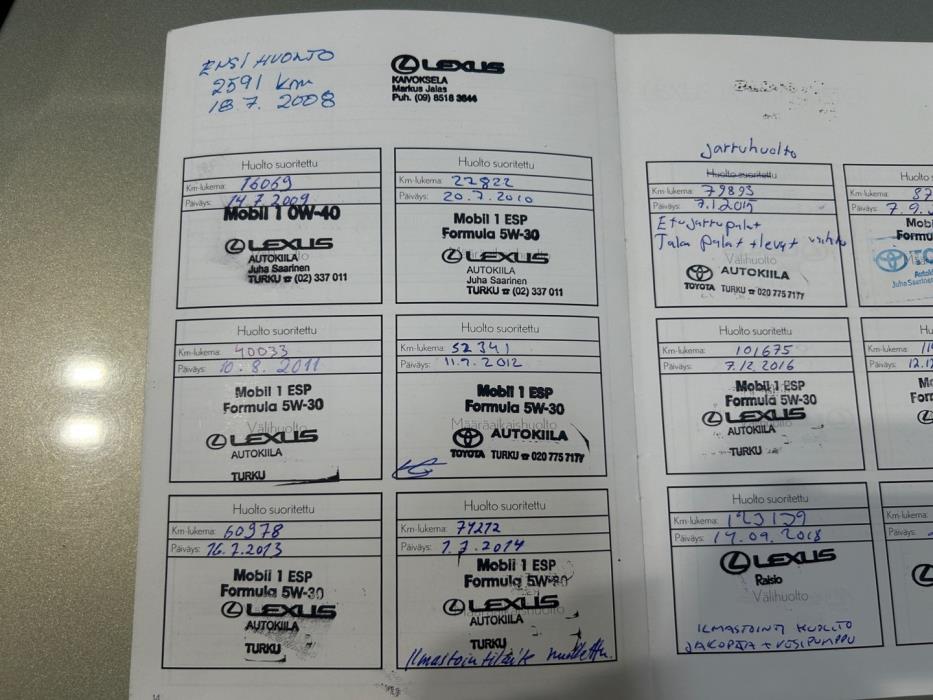 ENSI HUOLTO
2591 km
18.7.2008
LEXUS
KAIVOKSELA
Markus Jalas
Puh. (09) 8518 3644
Huolto suoritettu
Km-lukema: 16069
Päiväys: 14.7.2009
Mobil 1 0W-40
LEXUS
AUTOKIILA
Juha Saarinen
TURKU ☎ (02) 337 011
Huolto suoritettu
Km-lukema: 27822
Päiväys: 20.7.2010
Mobil 1 ESP
Formula 5W-30
LEXUS
AUTOKIILA
Juha Saarinen
TURKU ☎ (02) 337 011
Huolto suoritettu
Km-lukema: 40033
Päiväys: 10.8.2011
Mobil 1 ESP
Formula 5W-30
Välihuolto
LEXUS
AUTOKIILA
TURKU
Huolto suoritettu
Km-lukema: 52341
Päiväys: 11.7.2012
Mobil 1 ESP
Formula 5W-30
Määräaikaishuolto
AUTOKIILA
TOYOTA TURKU ☎ 020 775 7177
Huolto suoritettu
Km-lukema: 60978
Päiväys: 16.7.2013
Mobil 1 ESP
Formula 5W-30
LEXUS
AUTOKIILA
TURKU
Huolto suoritettu
Km-lukema: 71272
Päiväys: 1.7.2014
Mobil 1 ESP
Formula 5W-30
LEXUS
AUTOKIILA
TURKU
14
Jarruhuolto
Huolto suoritettu
Km-lukema: 79893
Päiväys: 7.1.2015
Etujarrupalat
Taka palat + levyt
Välihuolto
AUTOKIILA
TOYOTA TURKU ☎ 020 775 7177
Huolto suoritettu
Km-lukema: 101675
Päiväys: 7.12.2016
Mobil 1 ESP
Formula 5W-30
LEXUS
AUTOKIILA
TURKU
Huolto suoritettu
Km-lukema: 123139
Päiväys: 14.09.2018
LEXUS
Raisio
Välihuolto
ILMASTOINTI HUOLTO
JAKOPÄÄ + VESIPUMPPU